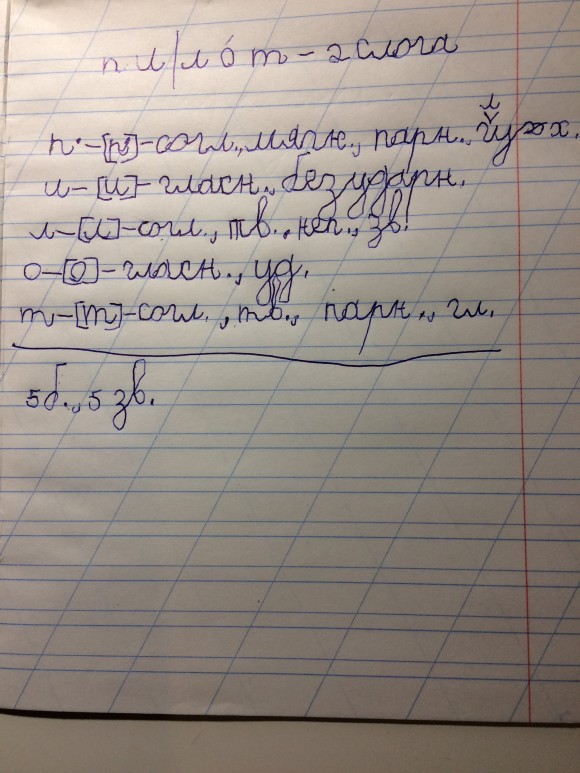 пи/ло́т - 2 слога
п' - [п'] - согл., мягк., парн., глух.
и - [и] - гласн., безударн.
л - [л] - согл., тв., неп., зв.
о - [о] - гласн., уд.
т - [т] - согл., тв., парн., гл.
5 б., 5 зв.